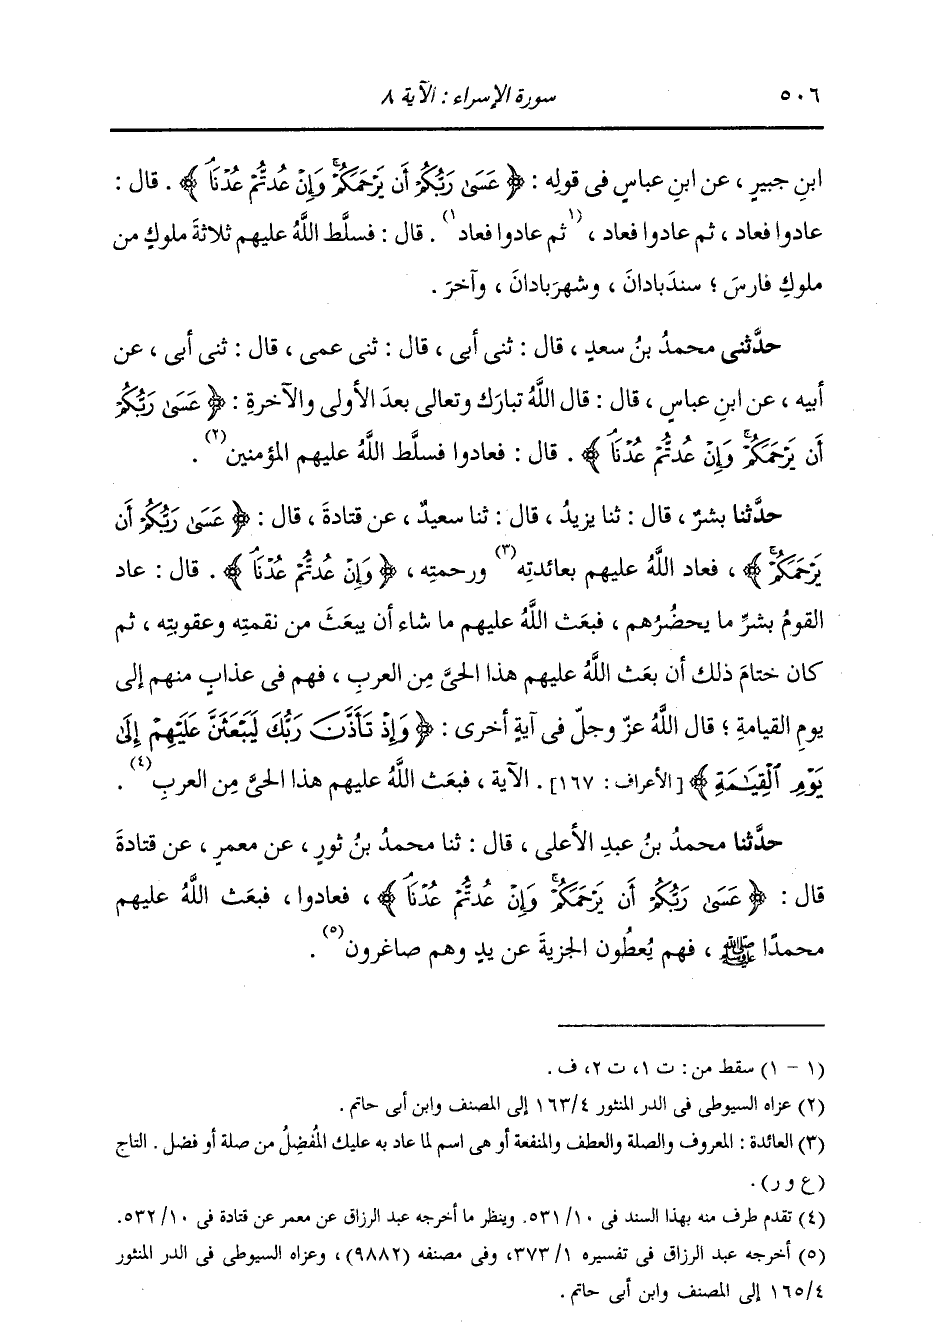 ٥٠٦ سورة الإسراء : الآية ٨
ابنِ جبيرٍ ، عن ابنِ عباسٍ فى قولِه : ﴿ عَسَىٰ رَبُّكُمْ أَن يَرْحَمَكُمْ ۚ وَإِنْ عُدتُّمْ عُدْنَا ۘ ﴾ . قال :
عادوا فعاد ، ثم عادوا فعاد ، (١ثم عادوا فعاد١) . قال : فسلَّط اللَّهُ عليهم ثلاثةَ ملوكٍ من
ملوكِ فارسَ ؛ سندَبادانَ ، وشهرَبادانَ ، وآخرَ .
حدَّثنى محمدُ بنُ سعدٍ ، قال : ثنى أبى ، قال : ثنى عمى ، قال : ثنى أبى ، عن
أبيه ، عن ابنِ عباسٍ ، قال : قال اللَّهُ تبارَك وتعالى بعدَ الأولى والآخرةِ : ﴿ عَسَىٰ رَبُّكُمْ
أَن يَرْحَمَكُمْ ۚ وَإِنْ عُدتُّمْ عُدْنَا ۘ ﴾ . قال : فعادوا فسلَّط اللَّهُ عليهم المؤمنين(٢) .
حدَّثنا بشرٌ ، قال : ثنا يزيدُ ، قال : ثنا سعيدٌ ، عن قتادةَ ، قال : ﴿ عَسَىٰ رَبُّكُمْ أَن
يَرْحَمَكُمْ ۚ ﴾ ، فعاد اللَّهُ عليهم بعائدتِه(٣) ورحمتِه ، ﴿ وَإِنْ عُدتُّمْ عُدْنَا ۘ ﴾ . قال : عاد
القومُ بشرِّ ما يحضُرُهم ، فبعَث اللَّهُ عليهم ما شاء أن يبعَثَ من نقمتِه وعقوبتِه ، ثم
كان ختامَ ذلك أن بعَث اللَّهُ عليهم هذا الحىَّ مِن العربِ ، فهم فى عذابٍ منهم إلى
يومِ القيامةِ ؛ قال اللَّهُ عزّ وجلّ فى آيةٍ أخرى : ﴿ وَإِذْ تَأَذَّنَ رَبُّكَ لَيَبْعَثَنَّ عَلَيْهِمْ إِلَىٰ
يَوْمِ ٱلْقِيَٰمَةِ ﴾ [الأعراف : ١٦٧] . الآية ، فبعَث اللَّهُ عليهم هذا الحىَّ مِن العربِ(٤) .
حدَّثنا محمدُ بنُ عبدِ الأعلى ، قال : ثنا محمدُ بنُ ثورٍ ، عن معمرٍ ، عن قتادةَ
قال : ﴿ عَسَىٰ رَبُّكُمْ أَن يَرْحَمَكُمْ ۚ وَإِنْ عُدتُّمْ عُدْنَا ۘ ﴾ ، فعادوا ، فبعَث اللَّهُ عليهم
محمدًا ﷺ ، فهم يُعطُون الجزيةَ عن يدٍ وهم صاغرون(٥) .
(١ - ١) سقط من : ت ١، ت ٢، ف .
(٢) عزاه السيوطى فى الدر المنثور ١٦٣/٤ إلى المصنف وابن أبى حاتم .
(٣) العائدة : المعروف والصلة والعطف والمنفعة أو هى اسم لما عاد به عليك المُفضِلُ من صلة أو فضل . التاج
(ع و ر) .
(٤) تقدم طرف منه بهذا السند فى ١٠/ ٥٣١. وينظر ما أخرجه عبد الرزاق عن معمر عن قتادة فى ١٠/ ٥٣٢.
(٥) أخرجه عبد الرزاق فى تفسيره ١/ ٣٧٣، وفى مصنفه (٩٨٨٢) ، وعزاه السيوطى فى الدر المنثور
١٦٥/٤ إلى المصنف وابن أبى حاتم .